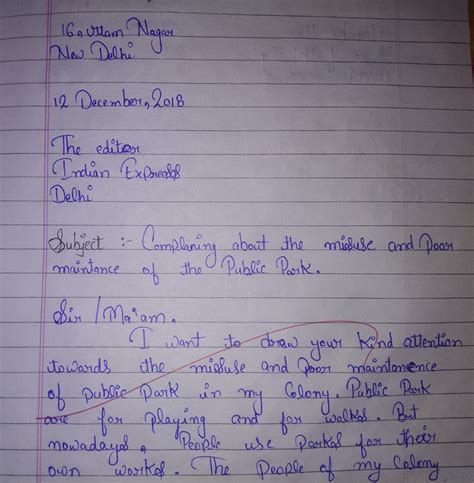 16, Uttam Nagar
New Delhi
12 December, 2018
The editor
Indian Express
Delhi
Subject :- Complaning about the misuse and Poor
maintance of the Public Park.
Sir /Ma'am.
I want to draw your kind attention
towards the misuse and Poor maintanence
of public Park in my Colony. Public Park
are for playing and for walks. But
nowadays, People use Parks for their
own works. The People of my Colony